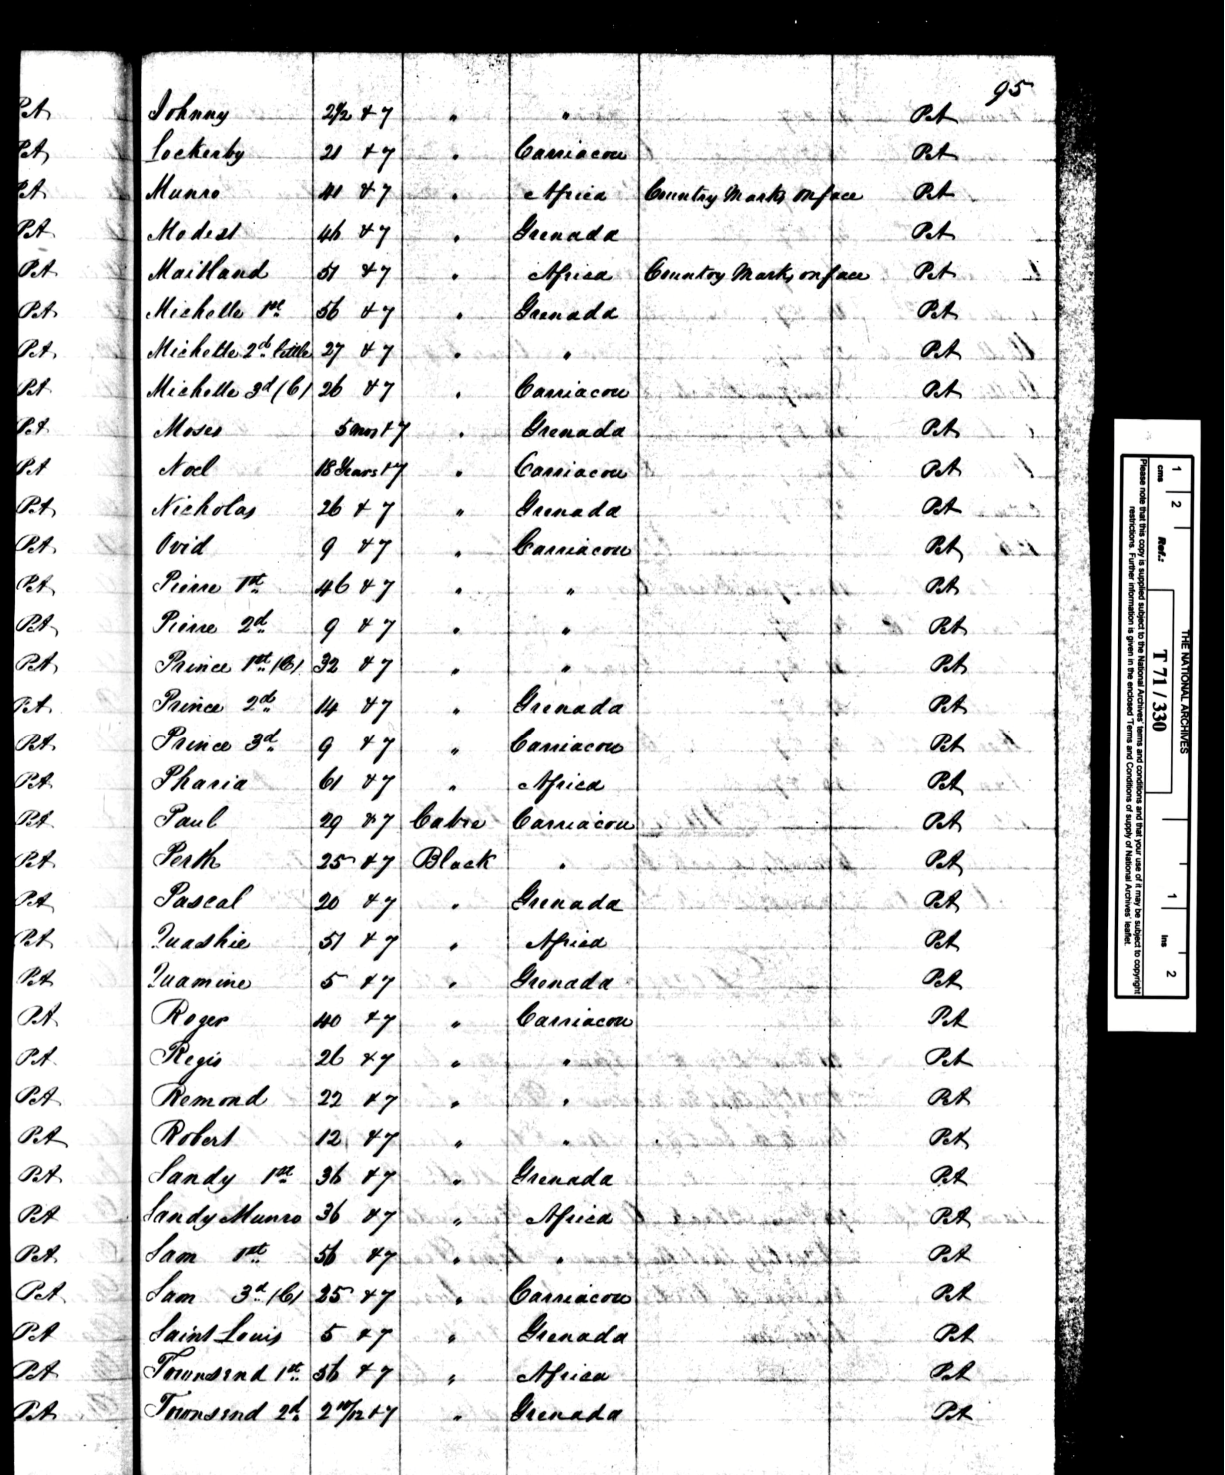 95
PA Johnny 2 1/2 & 7 " " PA
PA Lockerby 21 & 7 " Carriacou PA
PA Munro 41 & 7 " Africa Country Marks on face PA
PA Modest 46 & 7 " Grenada PA
PA Maitland 51 & 7 " Africa Country Marks on face PA
PA Michelle 1st 56 & 7 " Grenada PA
PA Michelle 2d little 27 & 7 " " PA
PA Michelle 3d (C) 26 & 7 " Carriacou PA
PA Moses 5 mos & 7 " Grenada PA
PA Noel 18 Years & 7 " Carriacou PA
PA Nicholas 26 & 7 " Grenada PA
PA Ovid 9 & 7 " Carriacou PA
PA Pierre 1st 46 & 7 " " PA
PA Pierre 2d 9 & 7 " " PA
PA Prince 1st (C) 32 & 7 " " PA
PA Prince 2d 14 & 7 " Grenada PA
PA Prince 3d 9 & 7 " Carriacou PA
PA Pharia 61 & 7 " Africa PA
PA Paul 29 & 7 Cabre Carriacou PA
PA Perth 25 & 7 Black " PA
PA Pascal 20 & 7 " Grenada PA
PA Quashie 51 & 7 " Africa PA
PA Quamine 5 & 7 " Grenada PA
PA Roger 40 & 7 " Carriacou PA
PA Regis 26 & 7 " " PA
PA Remond 22 & 7 " " PA
PA Robert 12 & 7 " " PA
PA Sandy 1st 36 & 7 " Grenada PA
PA Sandy Munro 36 & 7 " Africa PA
PA Sam 1st 56 & 7 " " PA
PA Sam 3d (C) 25 & 7 " Carriacou PA
PA Saint Louis 5 & 7 " Grenada PA
PA Townsend 1st 56 & 7 " Africa PA
PA Townsend 2d 2 10/12 & 7 " Grenada PA
THE NATIONAL ARCHIVES
Ref.: T 71 / 330
cms 1 2
1 ins 2
Please note that this copy is supplied subject to the National Archives' terms and conditions and that your use of it may be subject to copyright
restrictions. Further information is given in the enclosed 'Terms and Conditions of supply of National Archives' leaflet.